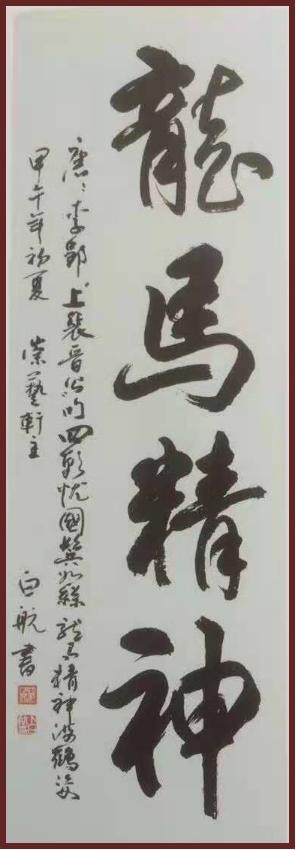 龍馬精神
唐：李郢上裴晋公句四朝忧國鬓如絲龍馬精神海鶴姿
甲午年初夏 崇藝軒主
白航書